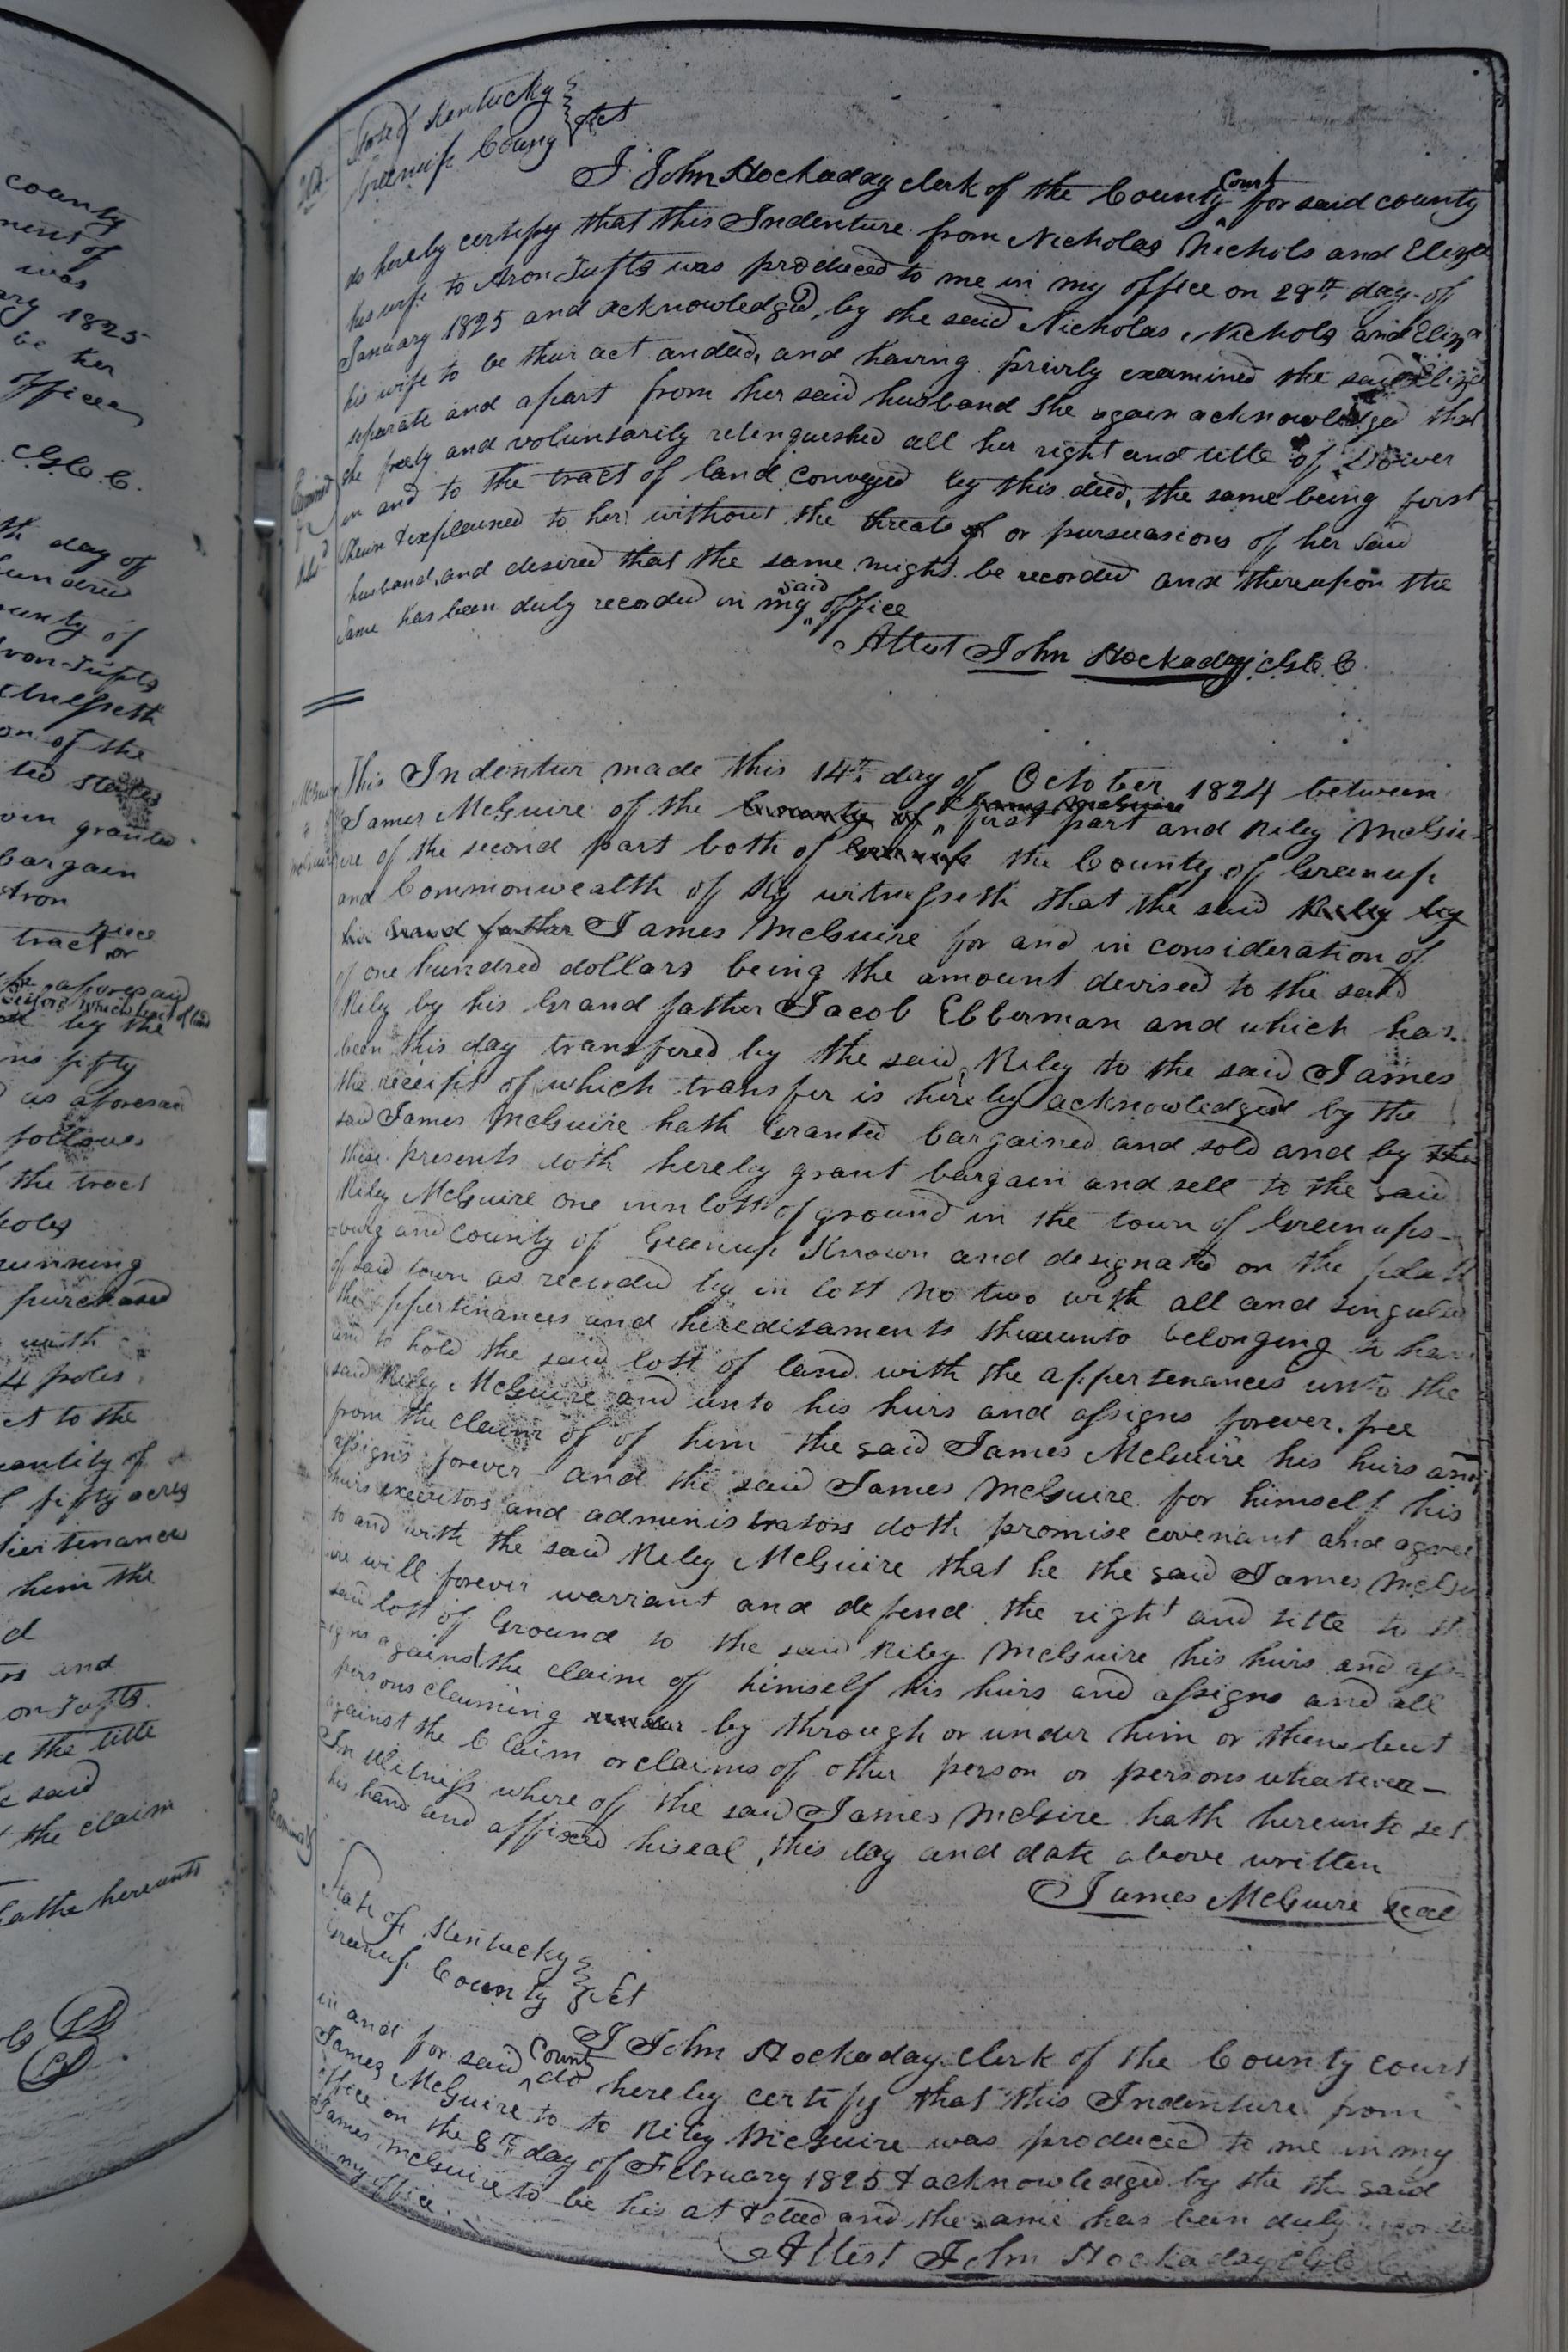 county
ment of
was
ary 1825
be her
office
C.G.C.C.
th day of
hundred
unty of
Aron Tufts
itnesseth
on of the
ted States
granted
bargain
Aron
tract or
piece
aforesaid
by the
ns fifty
as aforesaid
follows
the tract
poles
running
purchased
with
4 poles
et to the
uantity of
fifty acres
him the
d
rs and
on Tufts.
e the title
e said
the claim
hathe hereunto
State of Kentucky
Greenup County Sct
I John Hockaday clerk of the County Court for said county
do hereby certify that this Indenture from Nicholas Nichols and Eliza
his wife to Aron Tufts was produced to me in my office on 28th day of
January 1825 and acknowledged, by the said Nicholas Nichols and Eliza
his wife to be their act and deed, and having privily examined the said Eliza
separate and apart from her said husband she again acknowledged that
she freely and voluntarily relinquished all her right and title of Dower
in and to the tract of land conveyed by this deed, the same being first
shewn & explained to her without the threats of or pursuasions of her said
husband, and desired that the same might be recorded and thereupon the
same has been duly recorded in my said office
Attest John Hockaday C.G.C.C
This Indentur made this 14th day of October 1824 between
James McGuire of the County of James McGuire first part and Riley McGu-
ire of the second part both of Greenup the County of Greenup
and Commonwealth of Ky witnesseth that the said Riley by
his Grand father James McGuire for and in consideration of
of one hundred dollars being the amount devised to the said
Riley by his Grand father Jacob Ebberman and which has
been this day transfered by the said Riley to the said James
the receipt of which transfer is hereby acknowledged by the
said James McGuire hath Granted bargained and sold and by the
these presents doth hereby grant bargain and sell to the said
Riley McGuire one inn lott of ground in the town of Greenups-
burg and County of Greenup Known and designated on the platt
of said town as recorded by in lott No two with all and singular
the appertinances and hereditaments thereunto belonging to have
and to hold the said lott of land with the appertenances unto the
said Riley McGuire and unto his heirs and assigns forever. free
from the claim of of him the said James McGuire his heirs and
assigns forever and the said James McGuire for himself his
heirs executors and administrators doth promise covenant and agree
to and with the said Riley McGuire that he the said James McGu
ire will forever warrant and defend the right and title to the
said lott of Ground to the said Riley McGuire his heirs and as-
signs against the claim of himself his heirs and assigns and all
persons claiming under by through or under him or them but
against the Claim or claims of other person or persons whatever—
In Witness where of the said James McGire hath hereunto set
his hand and affixed hiseal, this day and date above written
James McGuire Seal
State of Kentucky
Greenup County Sct
I John Hockaday Clerk of the County court
in and for said County do hereby certify that this Indenture from
James McGuire to to Riley McGuire was produced to me in my
office on the 8th day of February 1825 & acknowledged by the the said
James McGuire to be his at & deed and the same has been duly recorded
in my office.
Attest John Hockaday C.G.C.C.